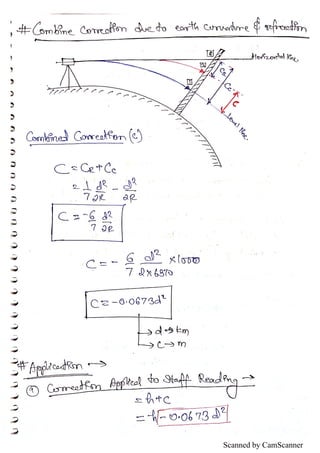 # Combine Correction due to earth curvature & refraction
Horizontal line
Cr
Cc
C
Level line
Combined Correction (C)
C = Cr + Cc
= 1/7 d²/2R - d²/2R
C = -6/7 d²/2R
C = - 6/7 d²/2×6370 ×1000
C = -0.0673d²
→ d → km
→ C → m
# Application →
① Correction Applied to Staff Reading →
= h + C
= h - 0.0673 d²
Scanned by CamScanner